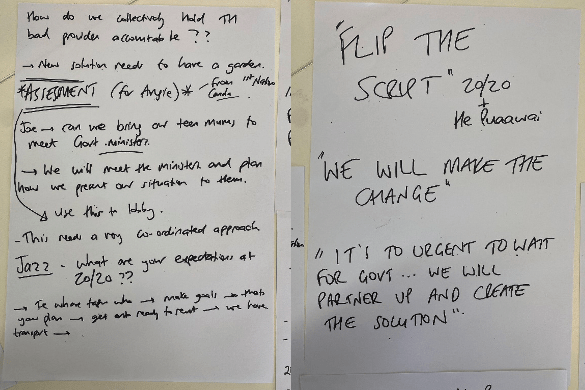 How do we collectively hold TH
bad provider accountable ??
→ New solution needs to have a garden.
*ASSESSMENT (for Angie)* from 1st Nation
Canada
Joe → can we bring our teen mums to
meet Govt. minister.
→ We will meet the ministers and plan
how we present our situation to them.
→ Use this to lobby.
- This needs a very co-ordinated approach
Jazz - What are your expectations at
20/20 ??
→ make goals → that's
your plan → get ready to rent → we have
transport →
"FLIP THE
SCRIPT" 20/20
+
He Puaawai
"WE WILL MAKE THE
CHANGE"
"IT'S TO URGENT TO WAIT
FOR GOVT... WE WILL
PARTNER UP AND CREATE
THE SOLUTION".